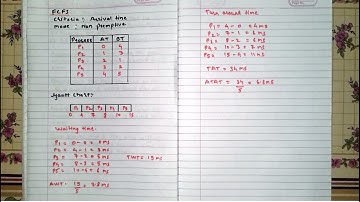 FCFS
Criteria : Arrival time
mode : Non premptive
Process AT BT
P1 0 4
P2 1 3
P3 2 1
P4 3 2
P5 4 5
Gantt Chart:
P1 P2 P3 P4 P5
0 4 7 8 10 15
Waiting time:
P1 = 0-0 = 0ms
P2 = 4-1 = 3ms
P3 = 7-2 = 5ms
P4 = 8-3 = 5ms
P5 = 10-4 = 6ms
TWT = 19ms
AWT = 19/5 = 3.8ms
Turn around time
P1 = 4-0 = 4ms
P2 = 7-1 = 6ms
P3 = 8-2 = 6ms
P4 = 10-3 = 7ms
P5 = 15-4 = 11ms
TAT = 34ms
ATAT = 34/5 = 6.8ms